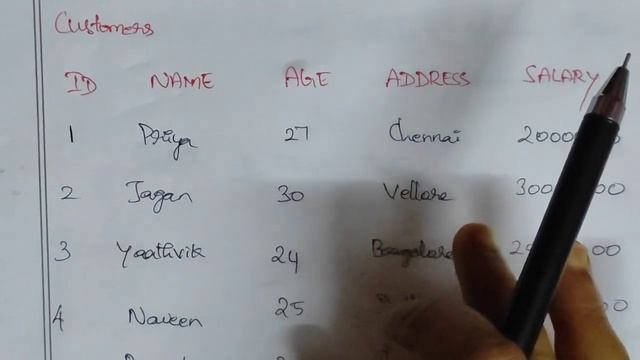 Customers
ID NAME AGE ADDRESS SALARY
1 Priya 27 Chennai
2 Jagan 30 Vellore
3 Yaathvik 24 Bangalore
4 Naveen 25